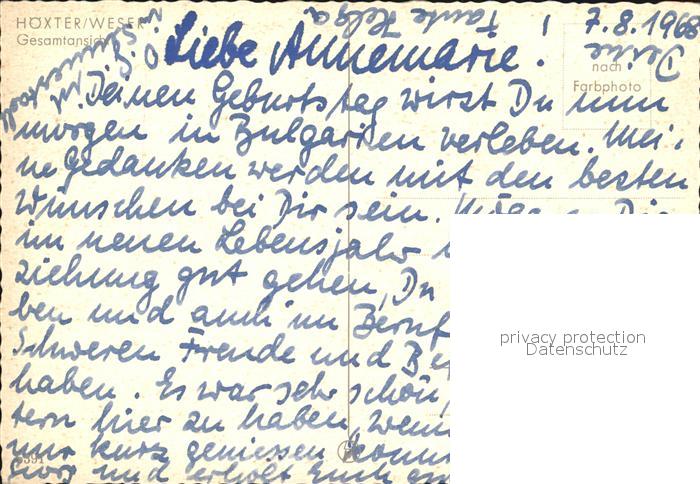 HÖXTER/WESER
Gesamtansicht
7.8.1968
Liebe Annemarie!
nach
Farbphoto
Deinen Geburtstag wirst Du nun
morgen in Bulgarien verleben. Mei-
ne Gedanken werden mit den besten
Wünschen bei Dir sein.
im neuen Lebensjahr
ziehung gut gehen, Du
ben und auch im Beruf
Schweren Freude und
haben. Es war sehr schön,
tern hier zu haben, wenn
nur kurz geniessen
und erholt Euch
Deine
Tante Helga
privacy protection
Datenschutz